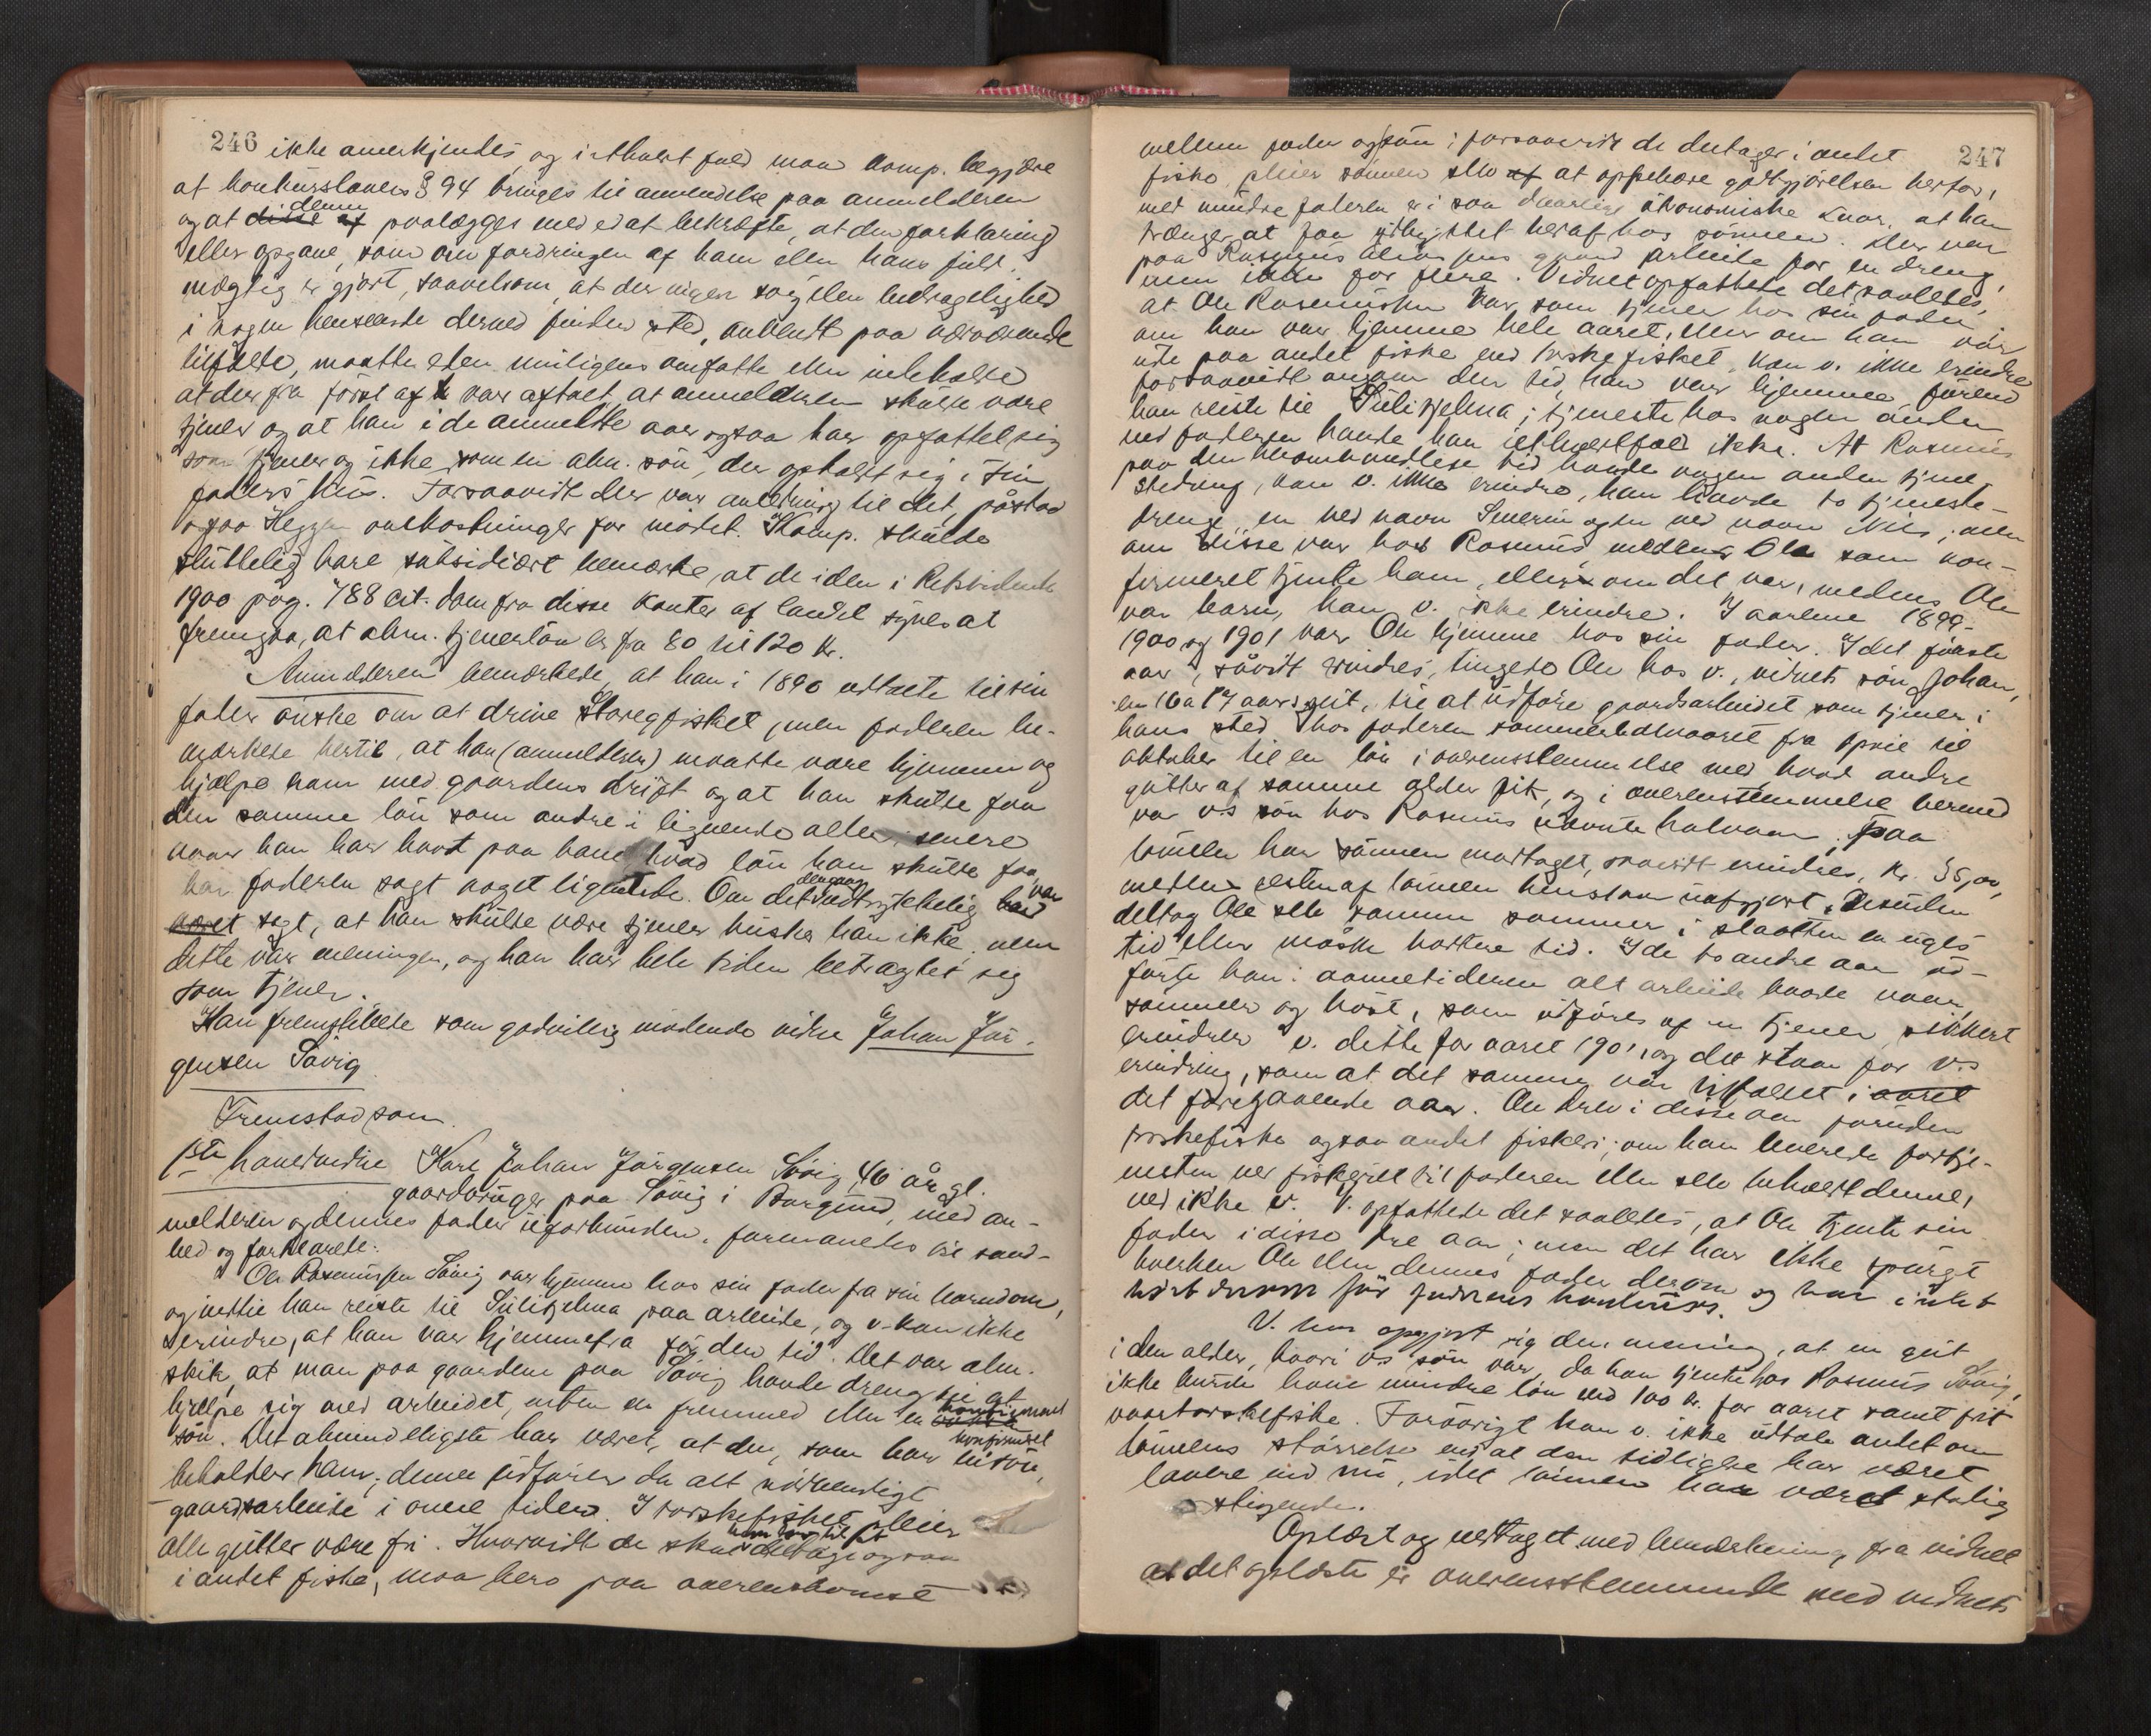 246
ikke anerkjendes, og i ethvert fald maa komp. begjære
at konkurslovens § 94 bringes til anvendelse paa anmelderen
og at denne paalægges med ed at bekræfte, at den forklaring
eller opgave, som om fordringen af ham eller hans fuld-
mægtig er gjort, saavelsom at der ingen svig eller bedragelighed
i nogen henseende derved finder sted, anvendt paa nærværende
tilfælde, maatte eden nemligen omfatte eller indeholde
at der fra først af var aftalt, at anmelderen skulde være
tjener og at han i de anmeldte aar ogsaa har opfattet sig
som tjener og ikke som en alm. søn, der opholdt sig i sin
faders hus. Forsaavidt der var anledning til det, påstod
ogsaa Heggen omkostninger for mødet. Komp. skulde
sluttelig bare subsidiært bemærke, at de i den i Retstidende
1900 pag. 788 cit. dom fra disse kanter af landet synes at
fremgaa, at alm. tjenerløn er fra 80 til 120 kr.
Anmelderen bemærkede, at han i 1896 udtalte til sin
fader ønske om at drive Storegfisket, men faderen be-
mærkede hertil, at han (anmelderen) maatte være hjemme og
hjælpe ham med gaardens drift og at han skulde faa
den samme løn som andre i lignende alder; senere
naar han har havt paa bane hvad løn han skulde faa,
har faderen sagt noget lignende. Om det dengang udtrykkelig var
sagt, at han skulde være tjener husker han ikke, men
dette var meningen, og han har hele tiden betragtet sig
som tjener.
Han fremstillede som godvillig mødende vidne Johan Jør-
gensen Søvig
Fremstod som
1ste hovedvidne Karl Johan Jørgensen Søvig, 46 år gl.
gaardbruger paa Søvig i Borgund, med an-
melderen og dennes fader uforbunden, formanedes til sand-
hed og forklarede:
Ole Rasmussen Søvig var hjemme hos sin fader fra sin barndom,
og indtil han reiste til Sulitjelma paa arbeide, og v. kan ikke
erindre, at han var hjemmefra før den tid. Det var alm.
skik, at man paa gaardene paa Søvig havde dreng til at
hjælpe sig med arbeidet, enten en fremmed eller en konfirmeret
søn. Det almindeligste har været, at den, som har en søn,
beholder ham; denne udfører da alt nødvendigt
gaardsarbeide i onnetiden. I torskefisket pleier
alle gutter være fri. Hvorvidt de skal have lov til at deltage ogsaa
i andet fiske, maa bero paa overenskomst
247
mellem fader og søn; forsaavidt de deltager i andet
fiske, pleier sønnen selv at oppebære godtgjørelsen herfor,
med mindre faderen er i saa daarlige økonomiske kaar, at han
trænger at faa udbyttet heraf hos sønnen. Der var
paa Rasmus gaard arbeide for en dreng,
men ikke for flere. Vidnet opfattede det saaledes,
at Ole Rasmussen var som tjener hos sin fader;
om han var hjemme hele aaret, eller om han var
ude paa andet fiske end torskefisket, kan v. ikke erindre
forsaavidt angaar den tid, han var hjemme, førend
han reiste til Sulitjelma; tjeneste hos nogen anden
end faderen havde han i ethvertfald ikke. At Rasmus
paa den heromhandlede tid havde nogen anden tjene-
stedreng, kan v. ikke erindre, han havde to tjeneste-
drenge, en ved navn Severin og en ved navn Nils; men
om disse var hos Rasmus, medens Ole som kon-
firmeret tjente ham, eller om det var, medens Ole
var barn, kan v. ikke erindre. I aarene 1899-
1900 og 1901 var Ole hjemme hos sin fader. I det første
aar, såvidt erindres, tingede Ole hos v., vidnets søn Johan,
en 16 a 17 aars gut, til at udføre gaardsarbeidet som tjener i
hans sted hos faderen sommerhalvaaret fra april til
oktober til en løn i overensstemmelse med hvad andre
gutter af samme alder fik, og i overensstemmelse hermed
var v.s søn hos Rasmus nævnte halvaar; paa
lønnen har sønnen modtaget, saavidt erindres, kr. 35,00,
medens resten af lønnen henstaar uafgjort. Desuden
deltog Ole selv samme sommer i slaatten en uges
tid eller måske kortere tid. I de to andre aar ud-
førte han i onnetiderne alt arbeide baade vaar,
sommer og høst, som udføres af en tjener, sikkert
erindrer v. dette for aaret 1901, og det staar for v.s
erindring, som at det samme var tilfældet i
det foregaaende aar. Ole drev i disse aar foruden
torskefiske ogsaa andet fiskeri; om han leverede fortje-
nesten ved fiskeriet til faderen eller selv beholdt denne,
ved ikke v. V. opfattede det saaledes, at Ole tjente sin
fader i disse tre aar; men det har ikke spurgt
hverken Ole eller dennes fader derom og har intet
hørt derom før faderens konkurs.
V. har opgjort sig den mening, at en gut
i den alder, hvori v.s søn var, da han tjente hos Rasmus Søvig,
ikke burde have mindre løn end 100 kr. for aaret samt frit
vaartorskefiske. Forøvrigt kan v. ikke udtale andet om
lønnens størrelse end at den tidligere har været
lavere end nu, idet lønnen har været stadig
stigende.
Oplæst og vedtaget med bemærkning fra vidnet
at det oplæste er overensstemmende med vidnets